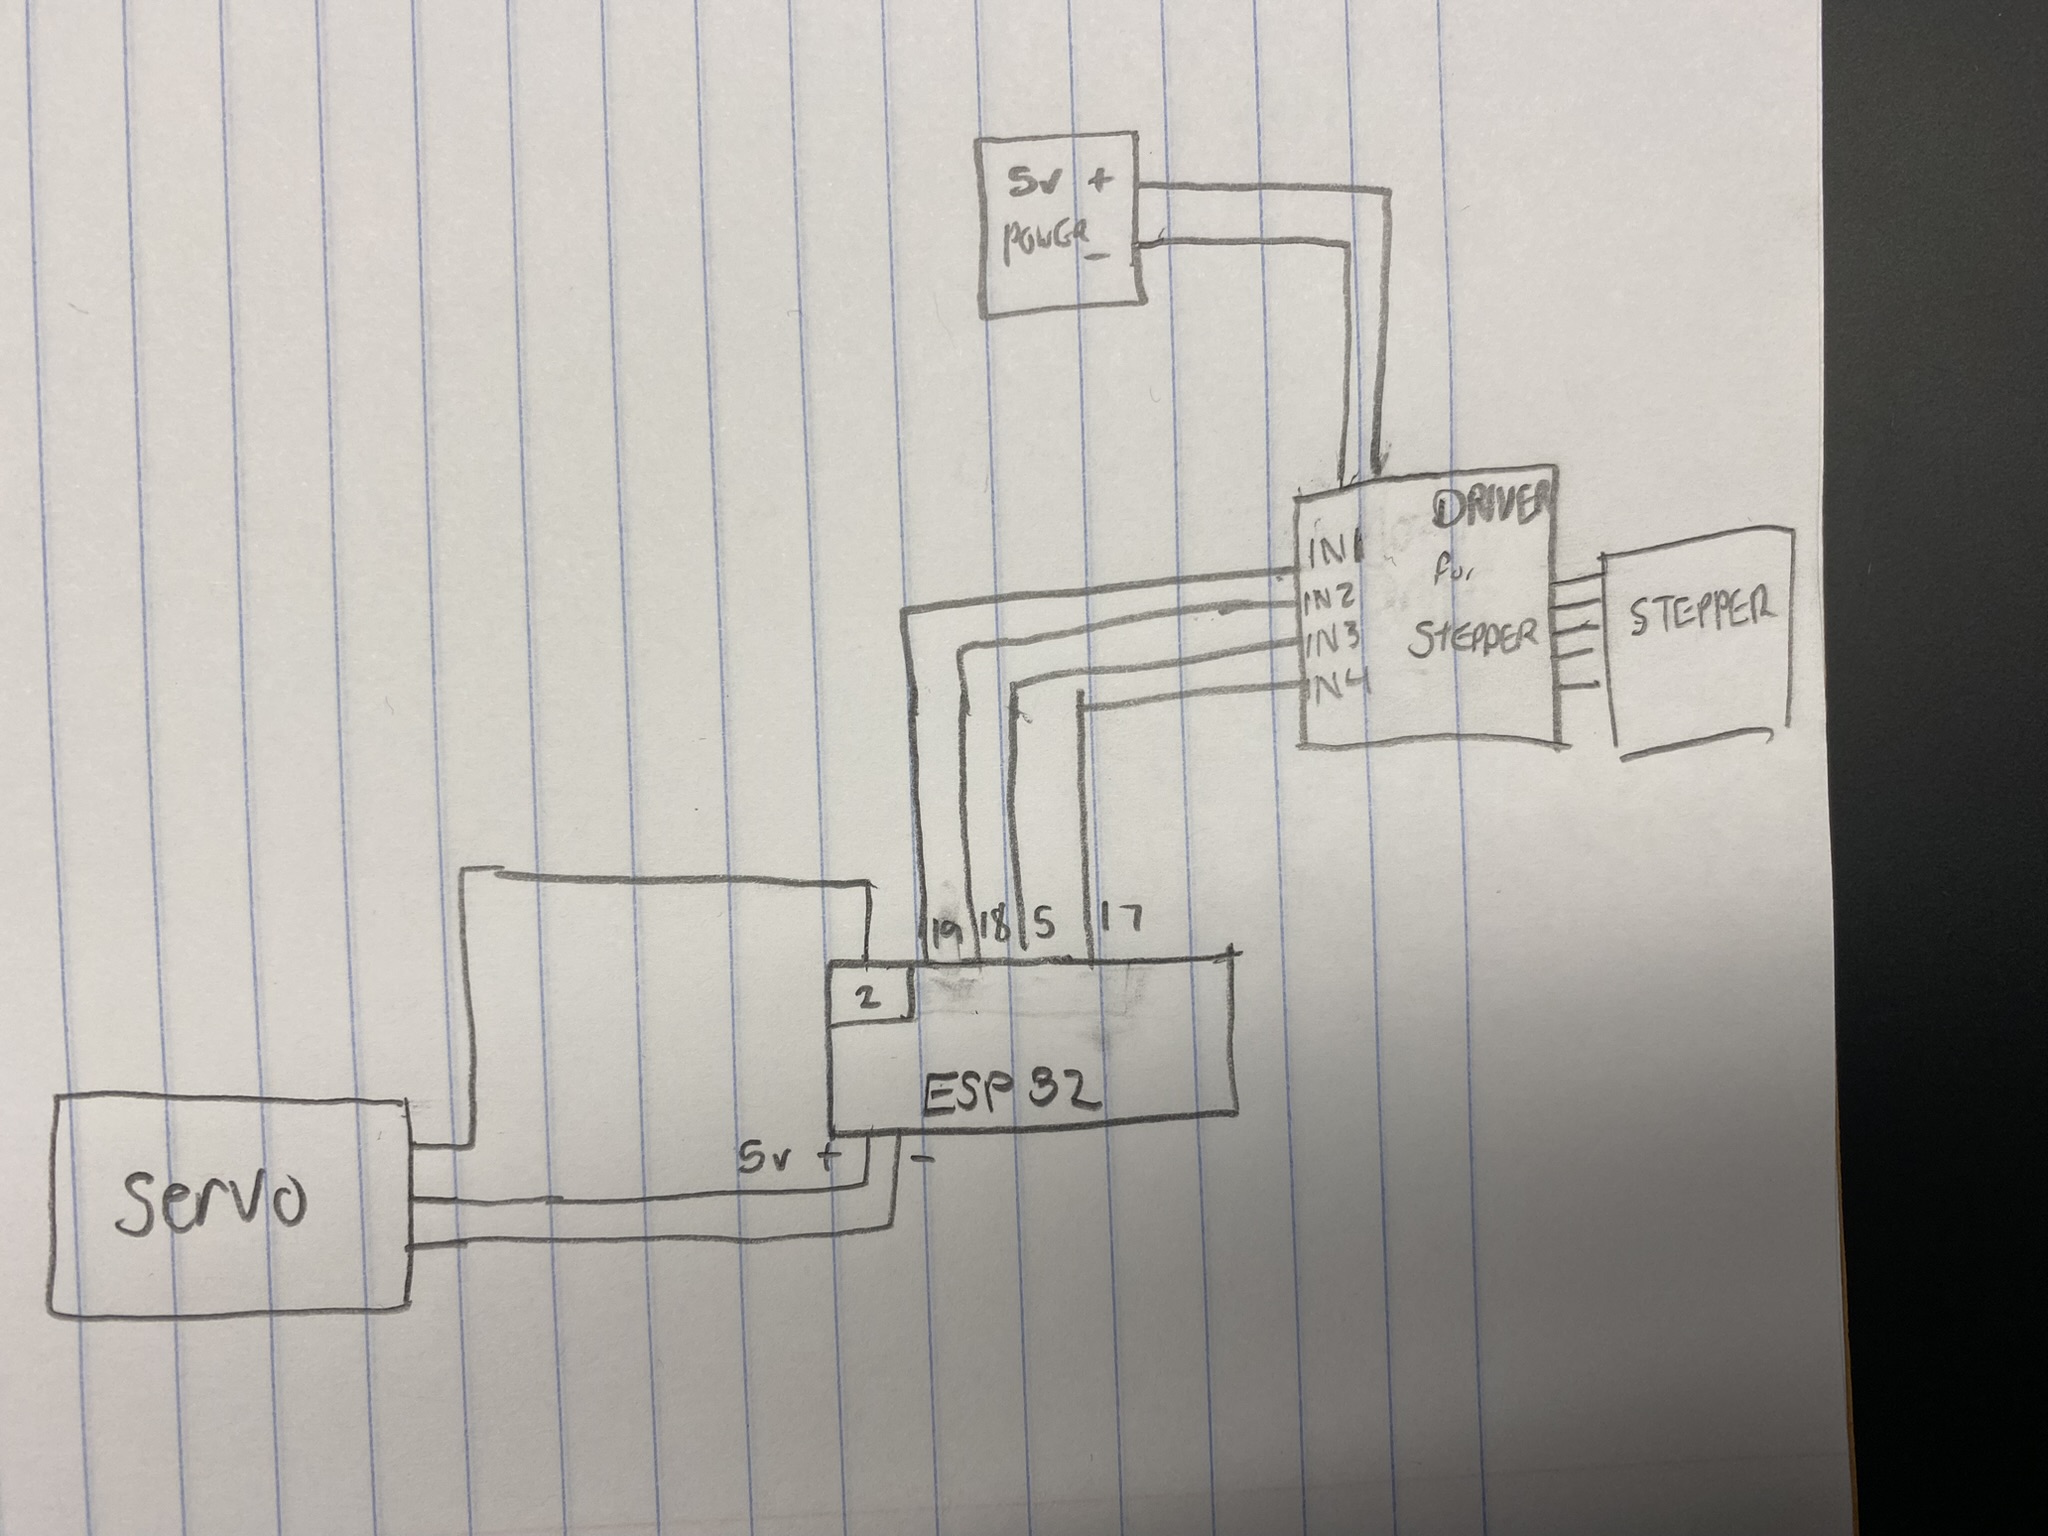 5v +
POWER -
DRIVER
for
STEPPER
IN1
IN2
IN3
IN4
STEPPER
19 18 5 17
2
ESP 32
5v + -
servo